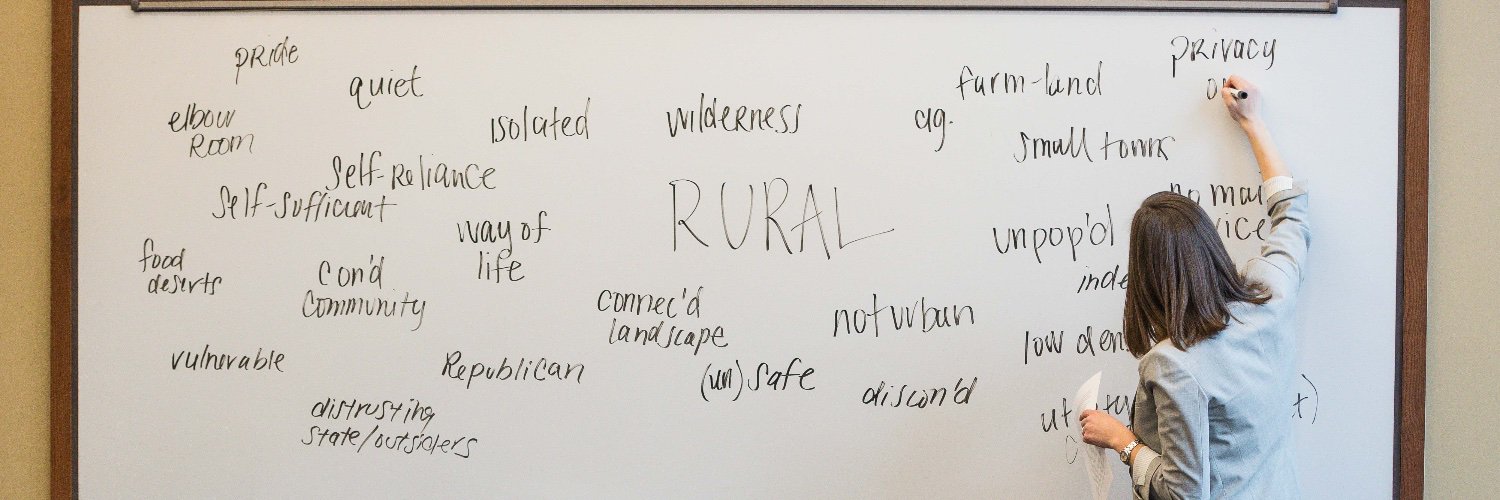 pride
quiet
elbow
room
isolated
wilderness
ag.
farm-land
privacy
small towns
self-reliance
self-sufficient
RURAL
way of
life
unpop'd
food
deserts
con'd
community
connec'd
landscape
not urban
low
vulnerable
Republican
(un)safe
discon'd
distrusting
state/outsiders